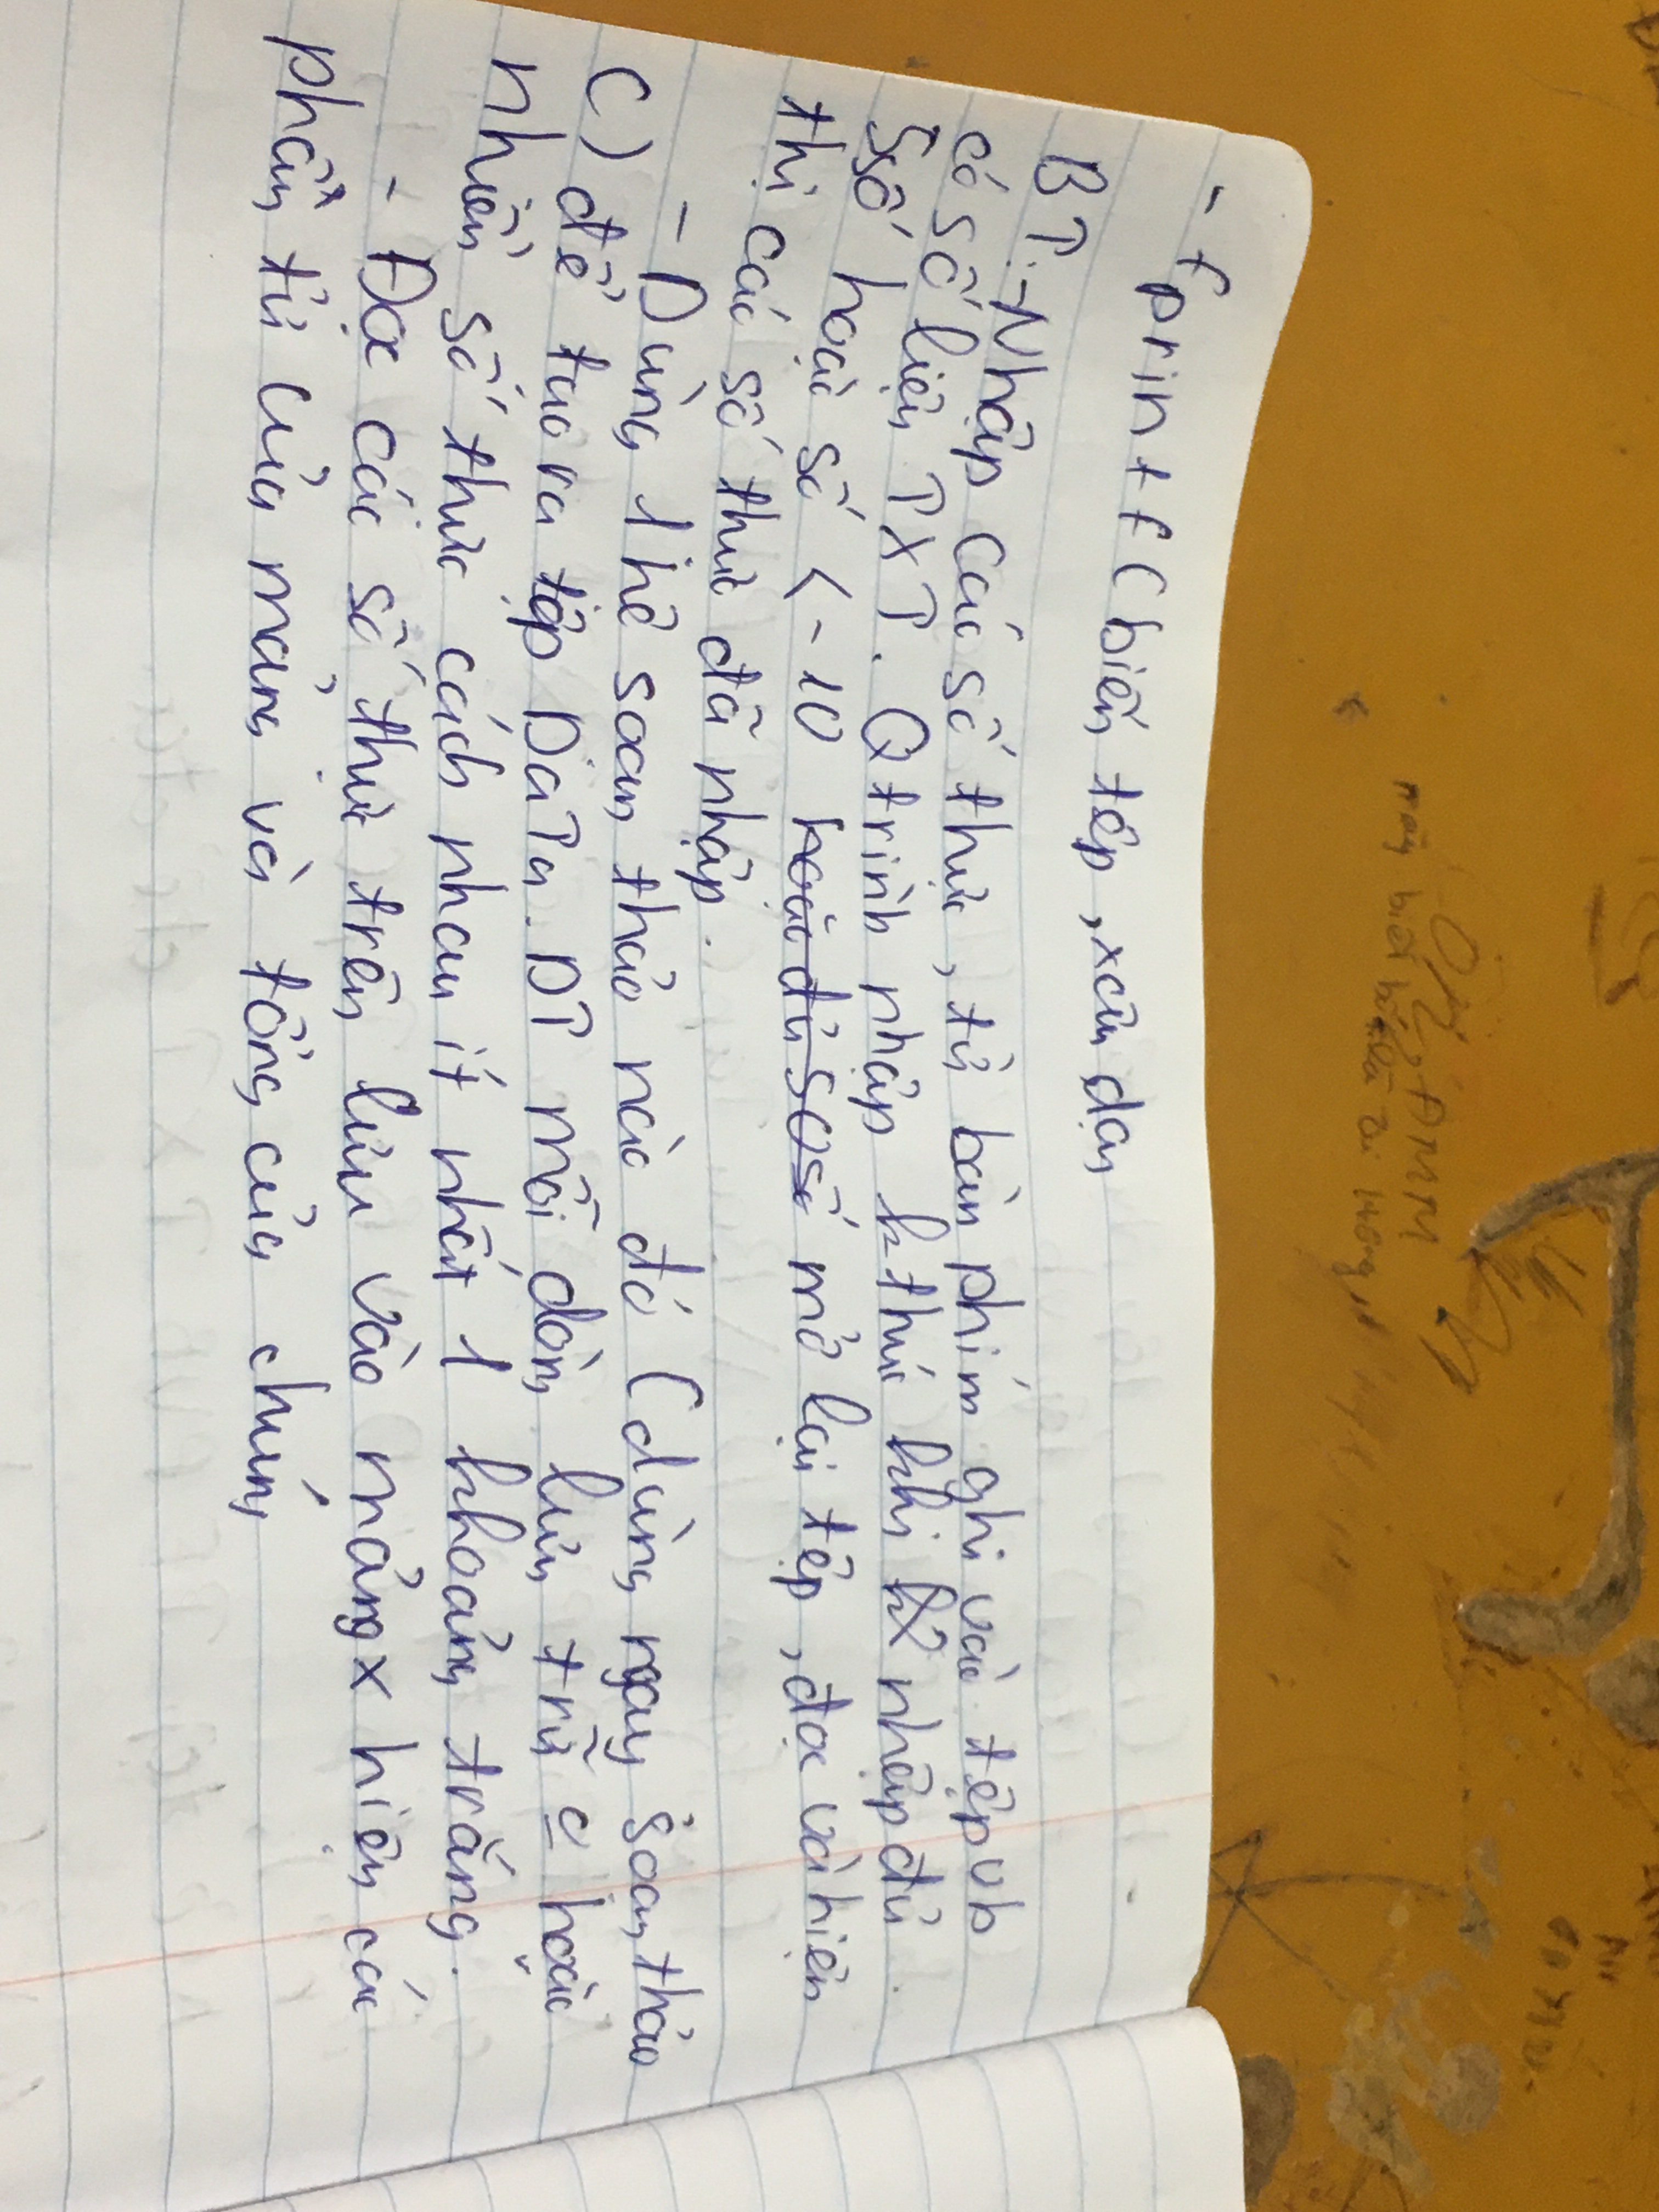 OK, ĐMM
mày biết bố là
- fprintf (biến tệp, xâu dạng
BT: - Nhập các số thực, từ bàn phím ghi vào tệp vb
có số liệu TXT. Q trình nhập k thúc khi nhập đủ
5 số hoặc số < -10 hoặc đủ 50 số mở lại tệp, đọc và hiện
thị các số thực đã nhập.
- Dùng 1 hệ soạn thảo nào đó (dùng ngay soạn thảo
C) để tạo ra tệp DaTa.DT mỗi dòng lưu trữ hoặc
nhiều số thực cách nhau ít nhất 1 khoảng trắng.
- Đọc các số thực trên lưu vào mảng x hiện các
phần tử của mảng và tổng của chúng